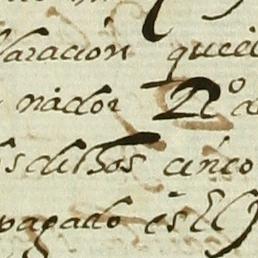 laracion que el
nador D.º a
s dichos cinco
pagado es El